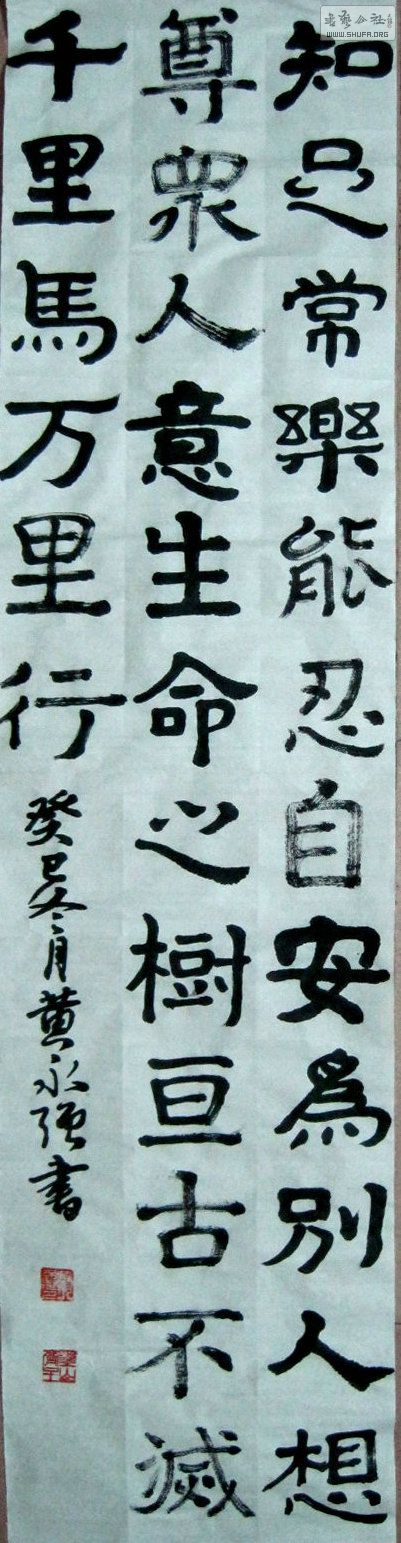 知足常樂能忍自安爲別人想
尊衆人意生命之樹亘古不滅
千里馬万里行
癸巳冬月黄永强書
书艺公社
WWW.SHUFA.ORG